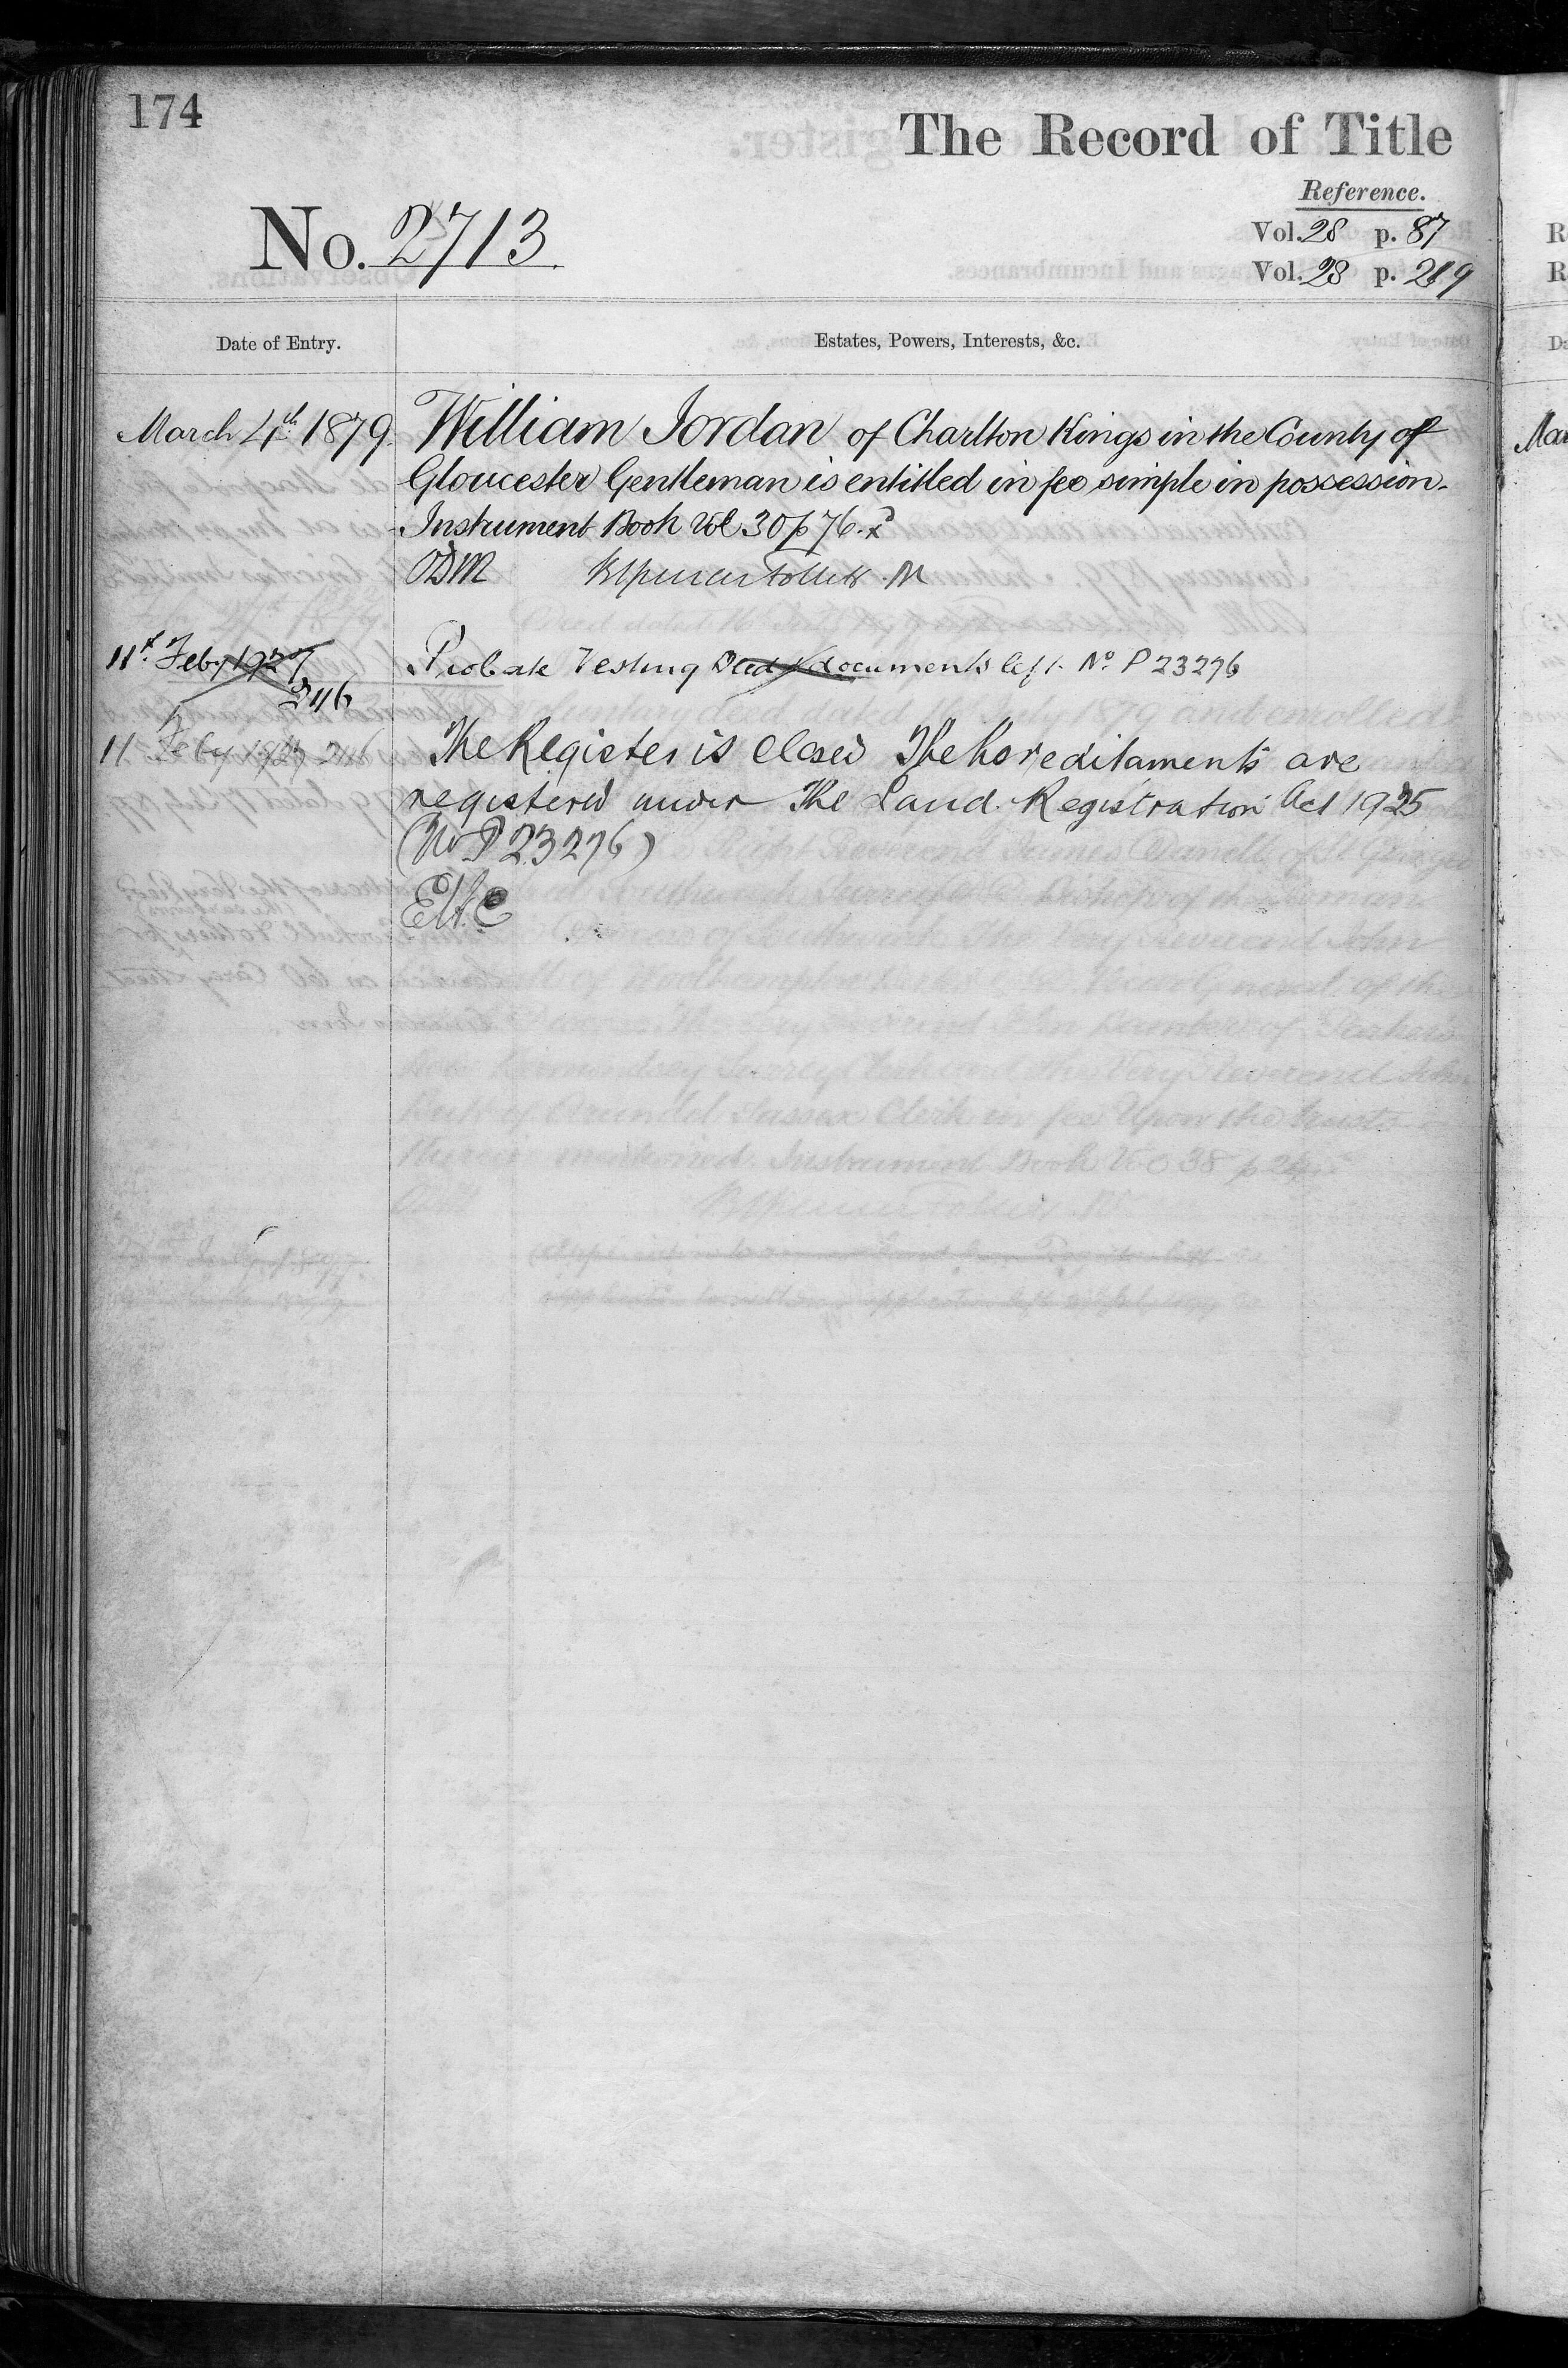 174
The Record of Title
Reference.
No. 2713
Vol. 28 p. 87
Vol. 28 p. 219
Date of Entry.
Estates, Powers, Interests, &c.
March 4th 1879.
William Jordan of Charlton Kings in the County of
Gloucester Gentleman is entitled in fee simple in possession.
Instrument Book Vol 30 p 76.
ODM
11th Feby 1927
2116
Probate Vesting Deed & documents left No. P 23276
11 Feby 1927 2116
The Register is Closed The hereditaments are
registered under The Land Registration Act 1925
(No P 23276)